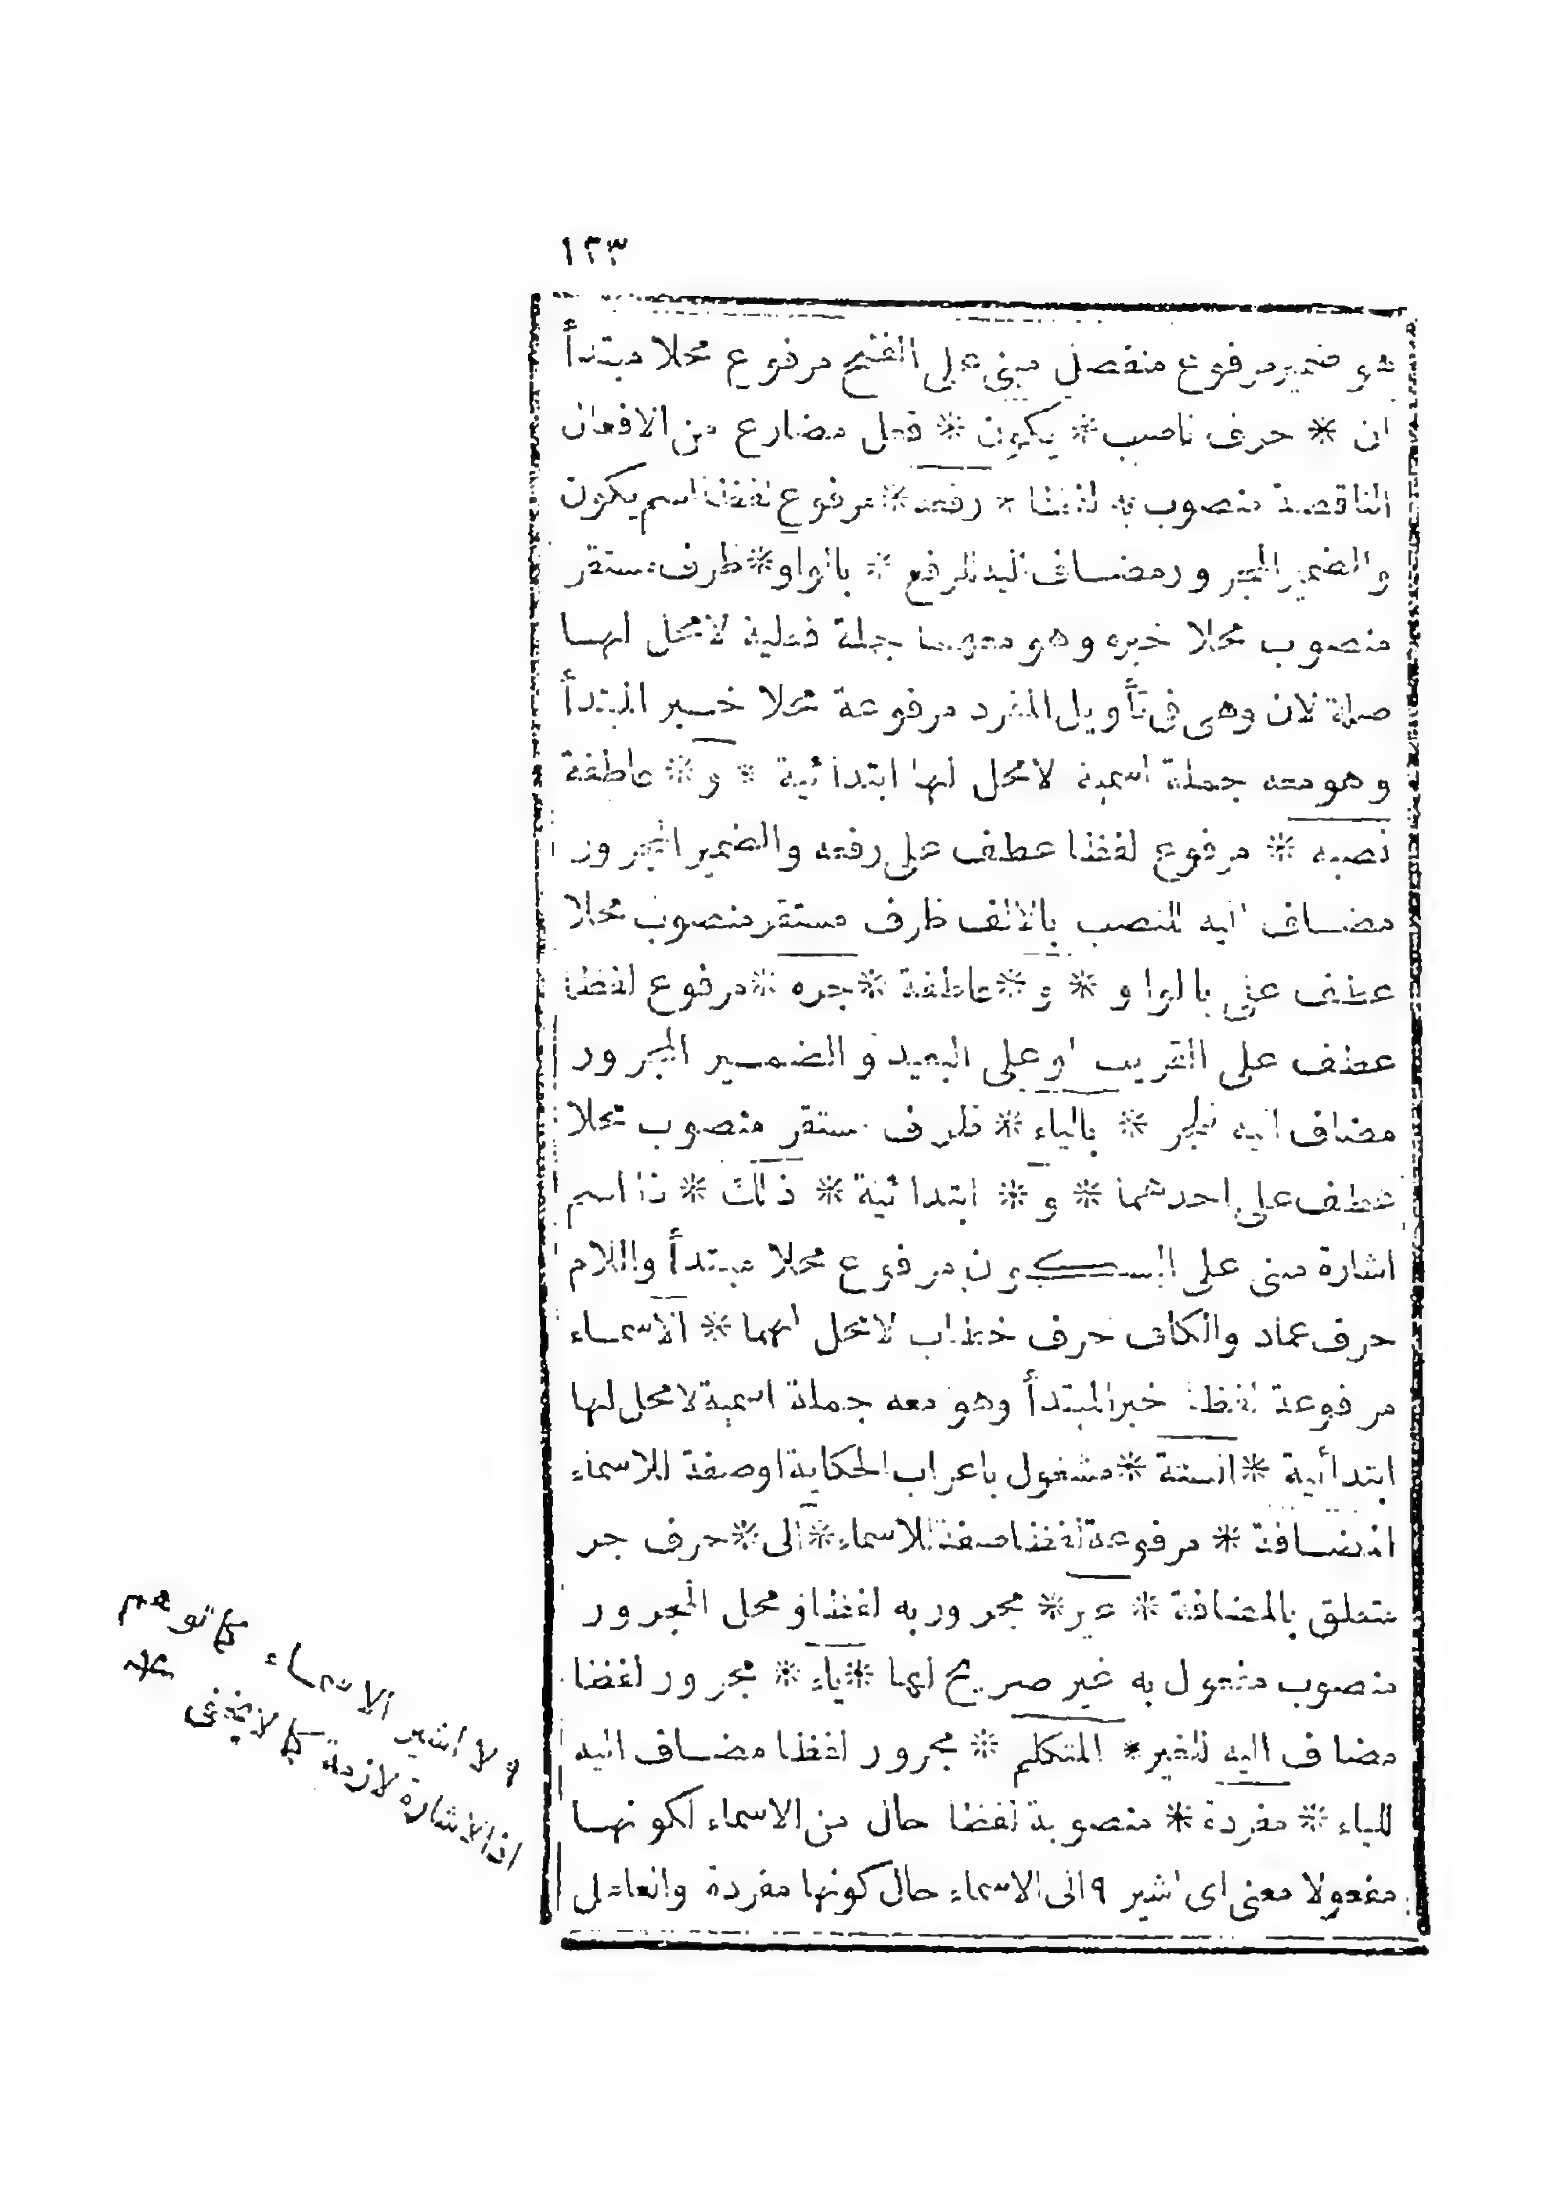 ١٣٣
هو ضمير مرفوع منفصل مبنى على الفتح مرفوع محلا مبتدأ
ان * حرف ناصب * يكون * فعل مضارع من الافعال
الناقصة منصوب به لفظا * رفعه * مرفوع لفظا اسم يكون
والضمير المجرور مضاف اليه للرفع * بالواو * ظرف مستقر
منصوب محلا خبره وهو معهما جملة فعلية لامحل لها
صلة لان وهى فى تأويل المفرد مرفوعة محلا خبر المبتدأ
وهو معه جملة اسمية لامحل لها ابتدائية * و * عاطفة
نصبه * مرفوع لفظا عطف على رفعه والضمير المجرور
مضاف اليه للنصب بالالف ظرف مستقر منصوب محلا
عطف على بالواو * و * عاطفة * جره * مرفوع لفظا
عطف على القريب اوعلى البعيد والضمير المجرور
مضاف اليه للجر * بالياء * ظرف مستقر منصوب محلا
عطف على احدهما * و * ابتدائية * ذلك * ذا اسم
اشارة مبنى على السكون مرفوع محلا مبتدأ واللام
حرف عماد والكاف حرف خطاب لامحل لهما * الاسماء
مرفوعة لفظا خبر المبتدأ وهو معه جملة اسمية لامحل لها
ابتدائية * الستة * مشغول باعراب الحكاية اوصفة للاسماء
المضافة * مرفوعة لفظا صفة للاسماء * الى * حرف جر
متعلق بالمضافة * غير * مجرور به لفظا و محل المجرور
منصوب مفعول به غير صريح لها * ياء * مجرور لفظا
مضاف اليه للغير * المتكلم * مجرور لفظا مضاف اليه
للياء * مفردة * منصوبة لفظا حال من الاسماء لكونها
مفعولا معنى اى اشير ٩ الى الاسماء حال كونها مفردة والعامل
٩ لا اشير الاسماء كما توهم
اذالاشارة لازمة كما لا يخفى